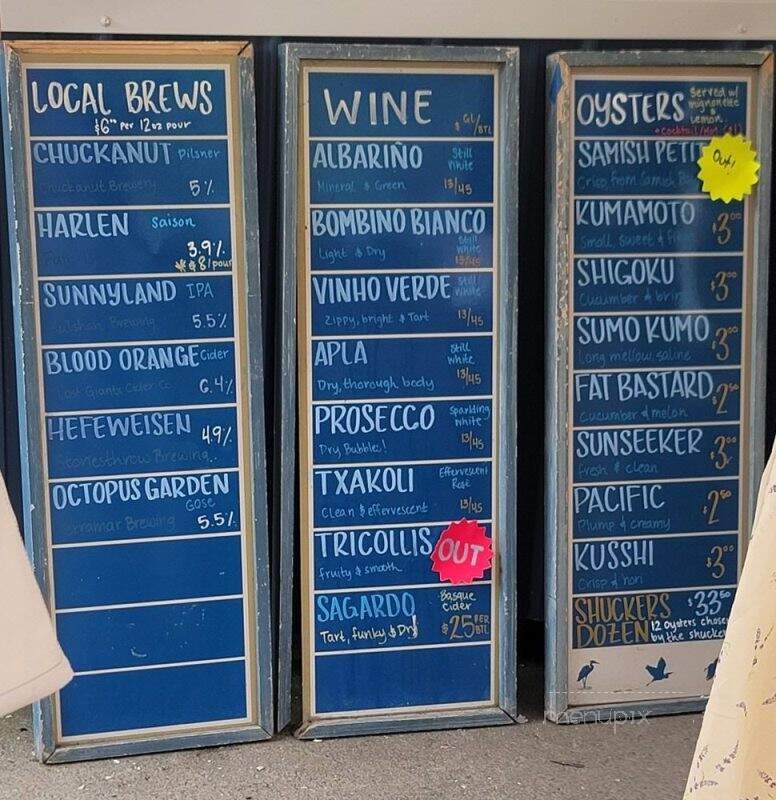 LOCAL BREWS
$6.00 per 12oz pour
CHUCKANUT Pilsner
Chuckanut Brewery 5%
HARLEN Saison
3.9%
$8/pour
SUNNYLAND IPA
Kulshan Brewing 5.5%
BLOOD ORANGE Cider
Lost Giants Cider Co. 6.4%
HEFEWEISEN 4.9%
Stonesthrow Brewing
OCTOPUS GARDEN
Gose
Terramar Brewing 5.5%
WINE $ GL/BTL
ALBARIÑO Still White
Mineral & Green 13/45
BOMBINO BIANCO
Still White
Light & Dry 13/45
VINHO VERDE Still White
Zippy, bright & Tart 13/45
APLA Still White
Dry, thorough body 13/45
PROSECCO Sparkling White
Dry Bubbles! 13/45
TXAKOLI Effervescent Rosé
Clean & effervescent 13/45
TRICOLLIS OUT
fruity & smooth
SAGARDO Basque Cider
Tart, funky & Dry $25 PER BTL
OYSTERS Served w/ mignonette & Lemon.
SAMISH PETIT Out!
Crisp from Samish
KUMAMOTO $3.00
Small, sweet &
SHIGOKU $3.00
Cucumber & brin
SUMO KUMO $3.00
Long mellow, saline
FAT BASTARD $2.50
cucumber & melon
SUNSEEKER $3.00
fresh & clean
PACIFIC $2.50
Plump & creamy
KUSSHI $3.00
Crisp &
SHUCKERS DOZEN $33.50
12 oysters chose
by the shucke
menupix